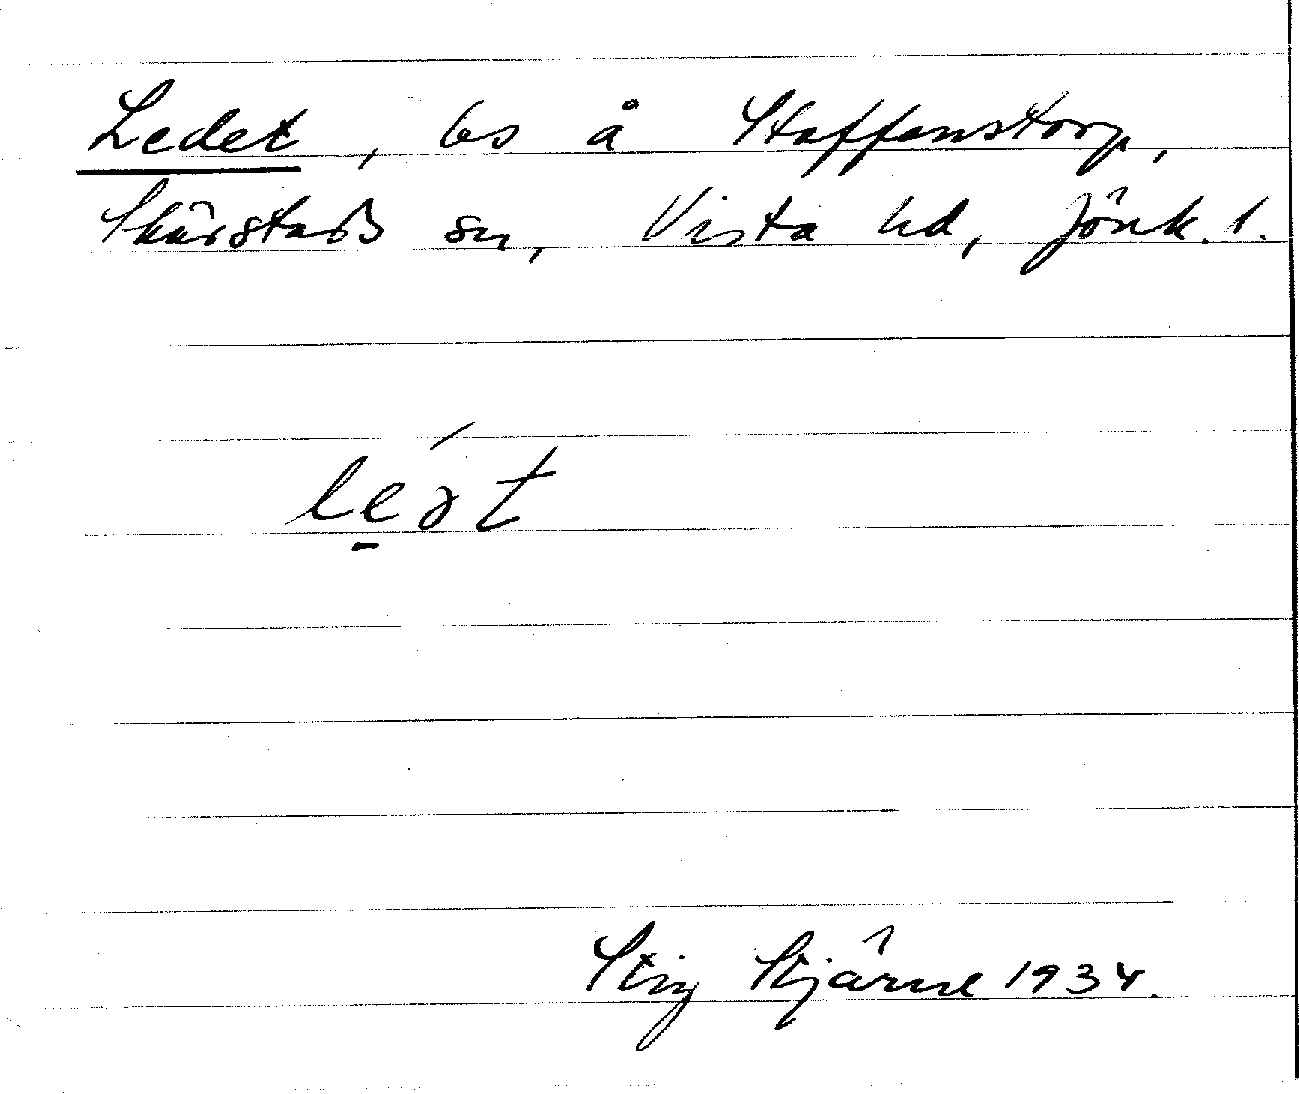 Ledet, ls å Staffanstorp,
Skärstads sn, Vista hd, Jönk. l.
léət
Stig Stjärne 1934.